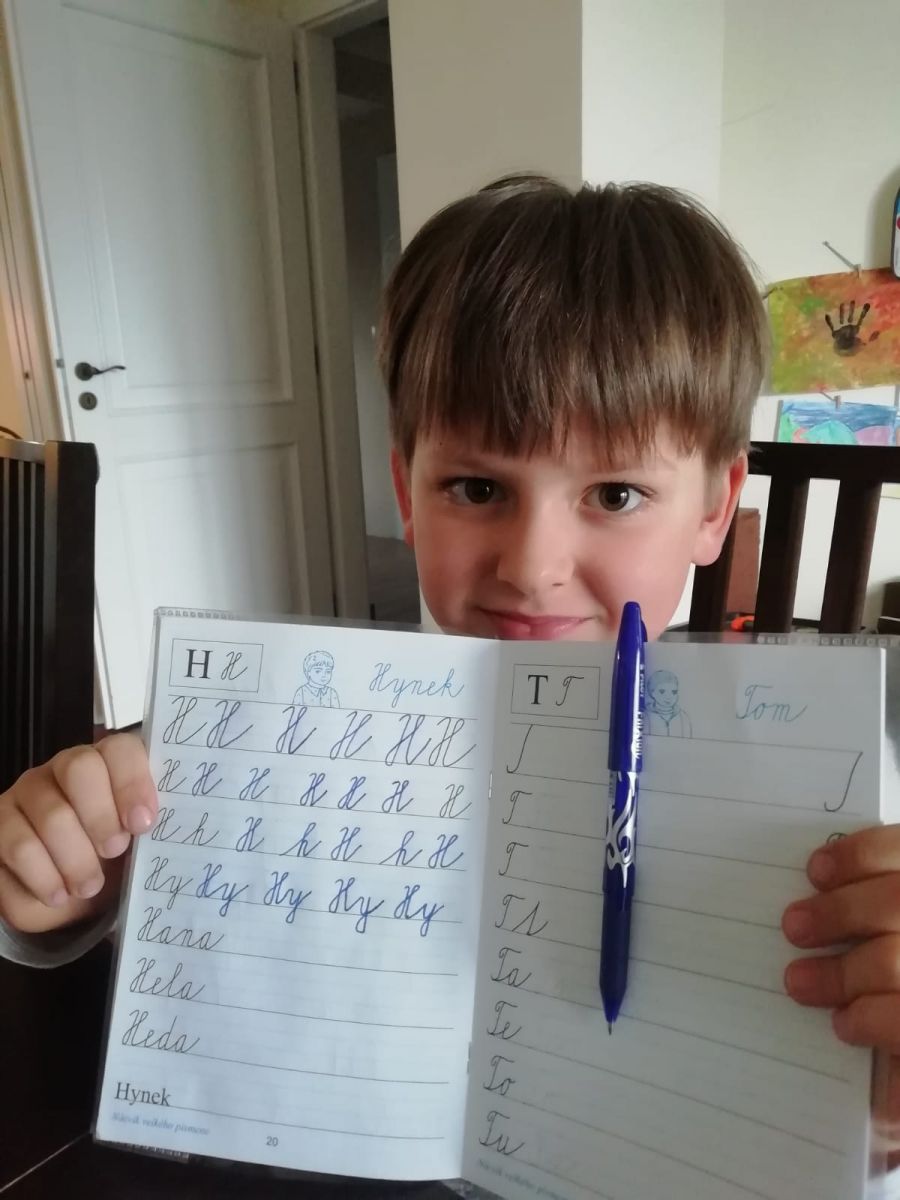 H H Hynek
H H H H H H
H H H H H H H
H h H h H h H
Hy Hy Hy Hy Hy
Hana
Hela
Heda
Hynek
Nácvik velkého písmene
20
T T Tom
T
T
Ta
Te
To
Tu